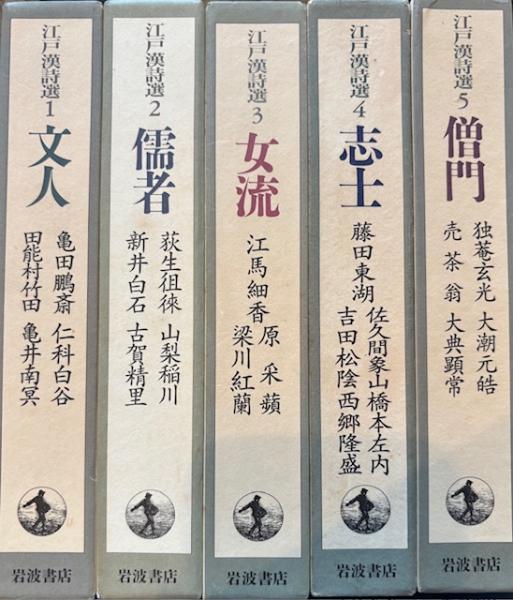 江戸漢詩選 1
文人
亀田鵬斎 仁科白谷
田能村竹田 亀井南冥
岩波書店
江戸漢詩選 2
儒者
荻生徂徠 山梨稲川
新井白石 古賀精里
岩波書店
江戸漢詩選 3
女流
江馬細香
原 采蘋
梁川紅蘭
岩波書店
江戸漢詩選 4
志士
藤田東湖
佐久間象山 橋本左内
吉田松陰 西郷隆盛
岩波書店
江戸漢詩選 5
僧門
独菴玄光 大潮元皓
売茶翁 大典顕常
岩波書店